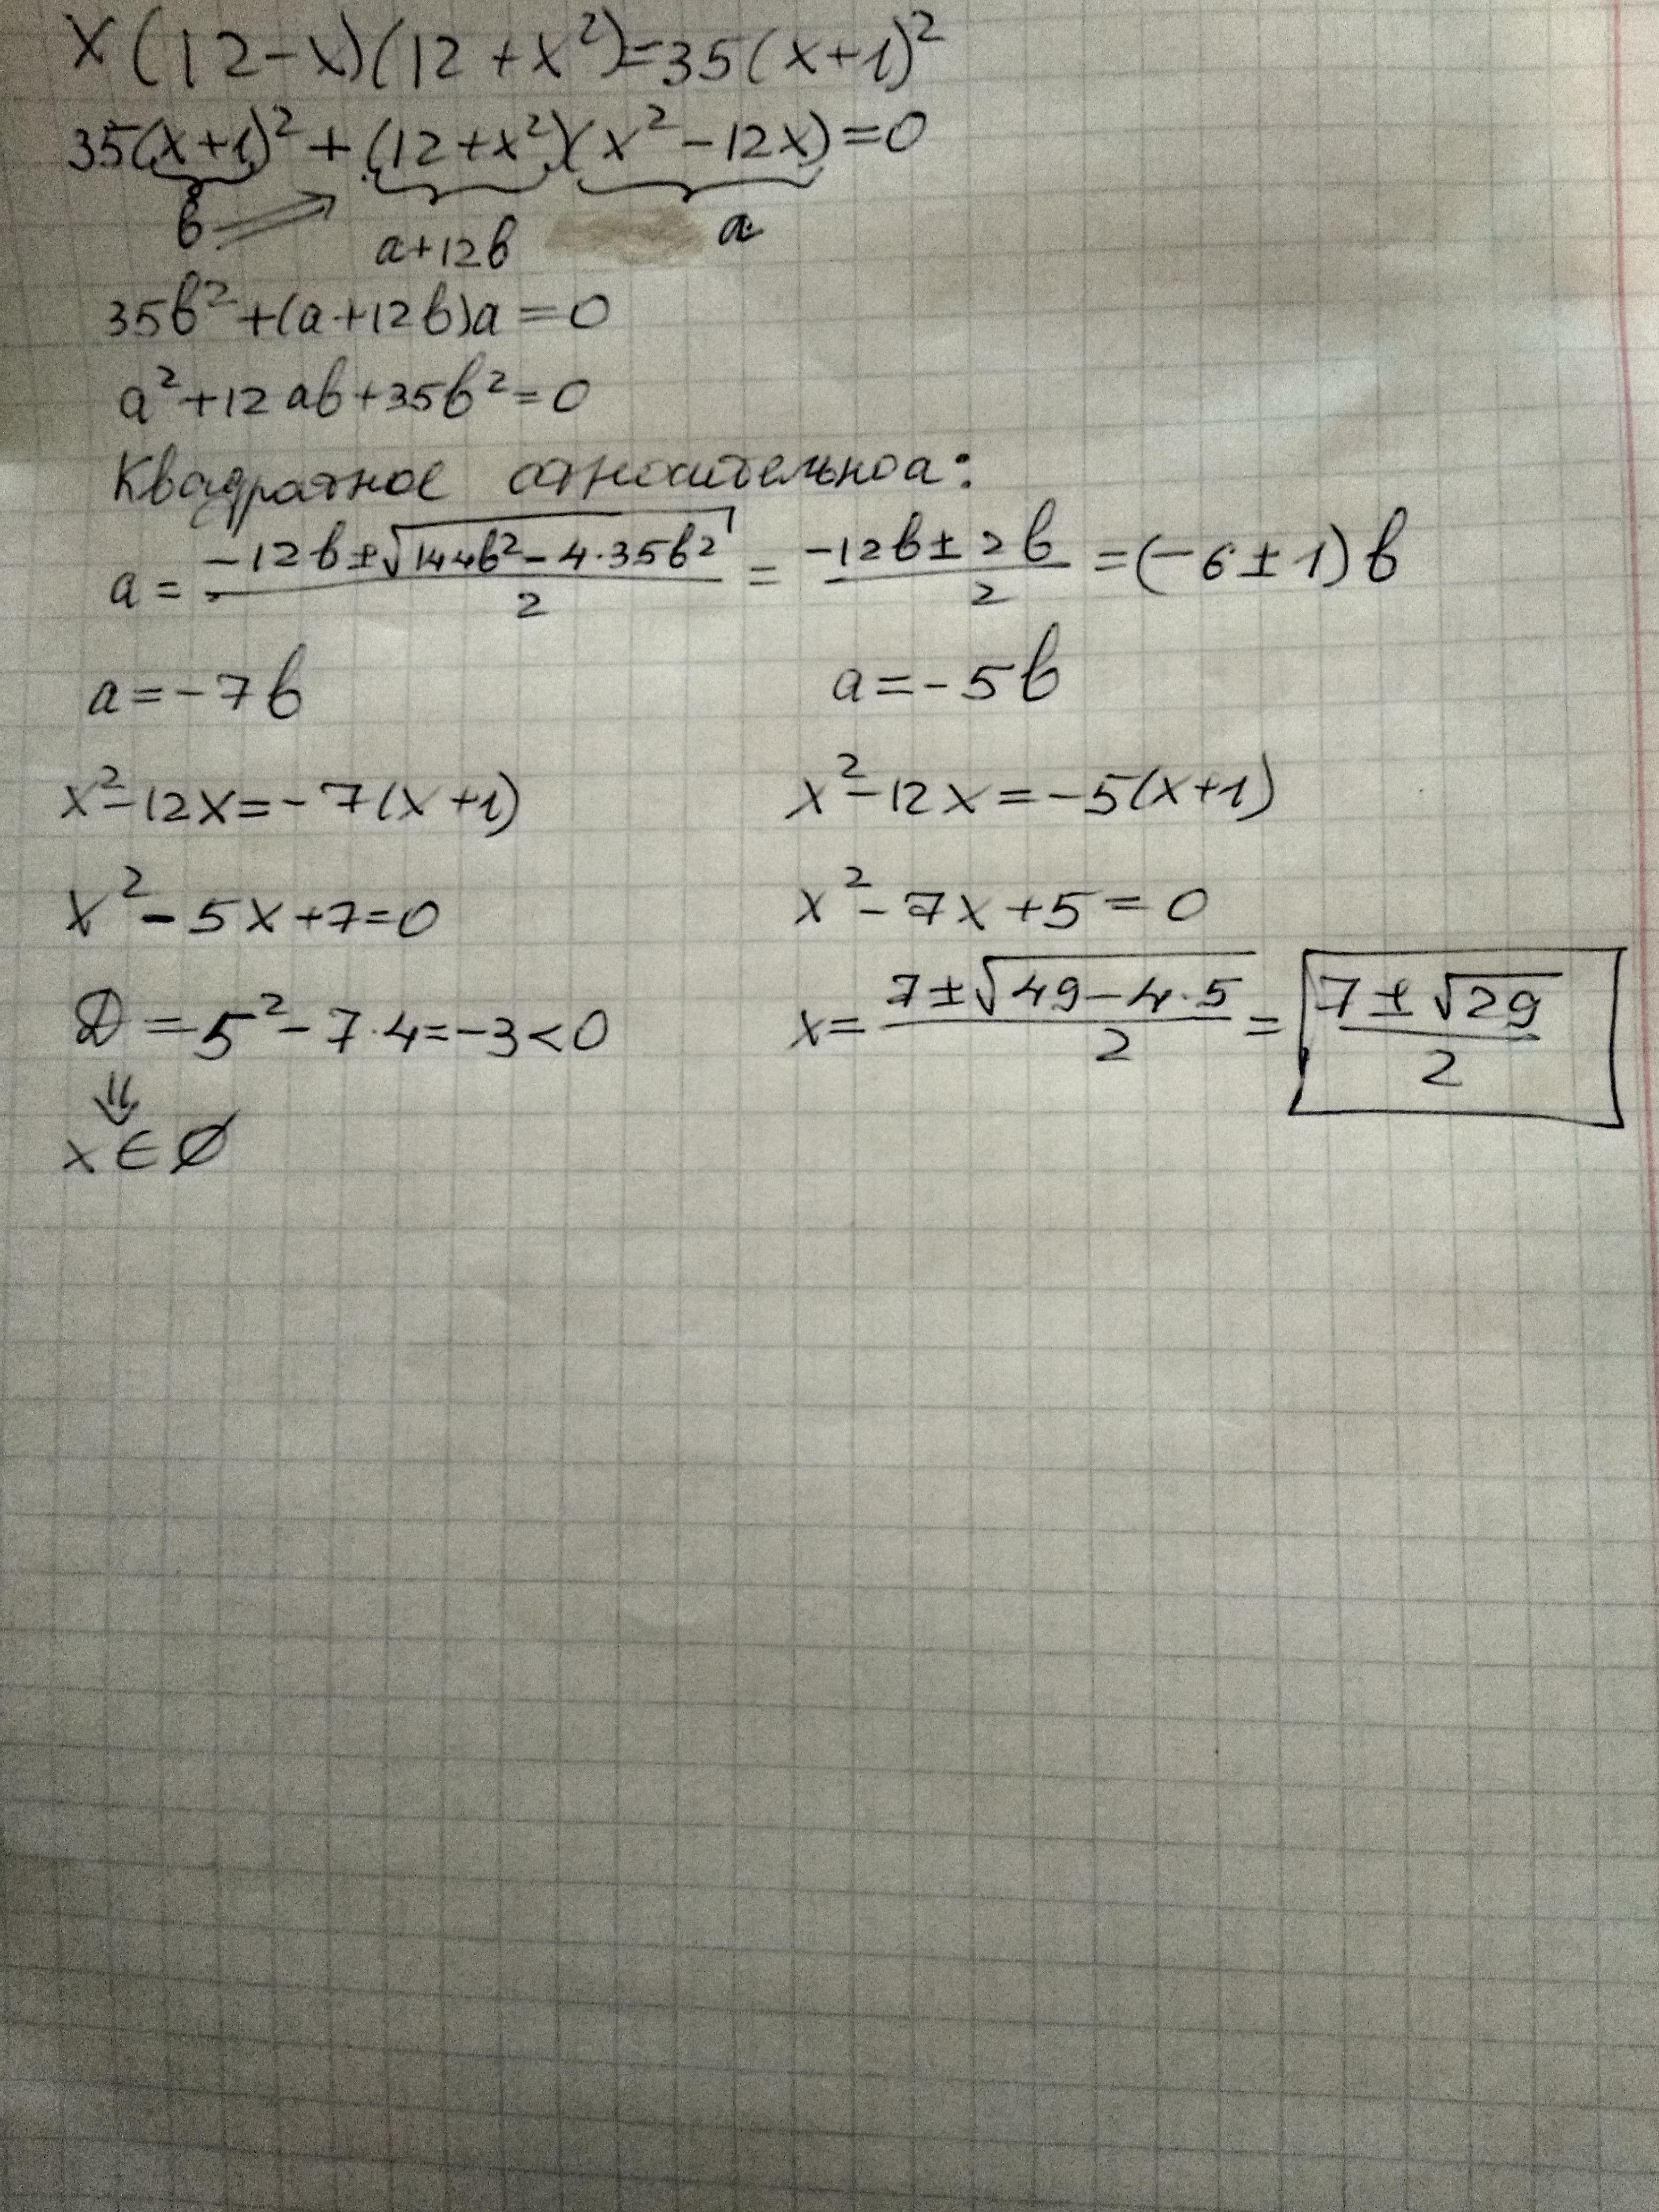 x(12-x)(12+x²)=35(x+1)²
35(x+1)²+(12+x²)(x²-12x)=0
в ⇒ a+12в a
35в²+(a+12в)a=0
a²+12aв+35в²=0
Квадратное относительно a:
a = (-12в±√(144в²-4·35в²))/2 = (-12в±2в)/2 = (-6±1)в
a=-7в a=-5в
x²-12x=-7(x+1) x²-12x=-5(x+1)
x²-5x+7=0 x²-7x+5=0
D=5²-7·4=-3<0 x=(7±√(49-4·5))/2=(7±√29)/2
⇓
x∈∅